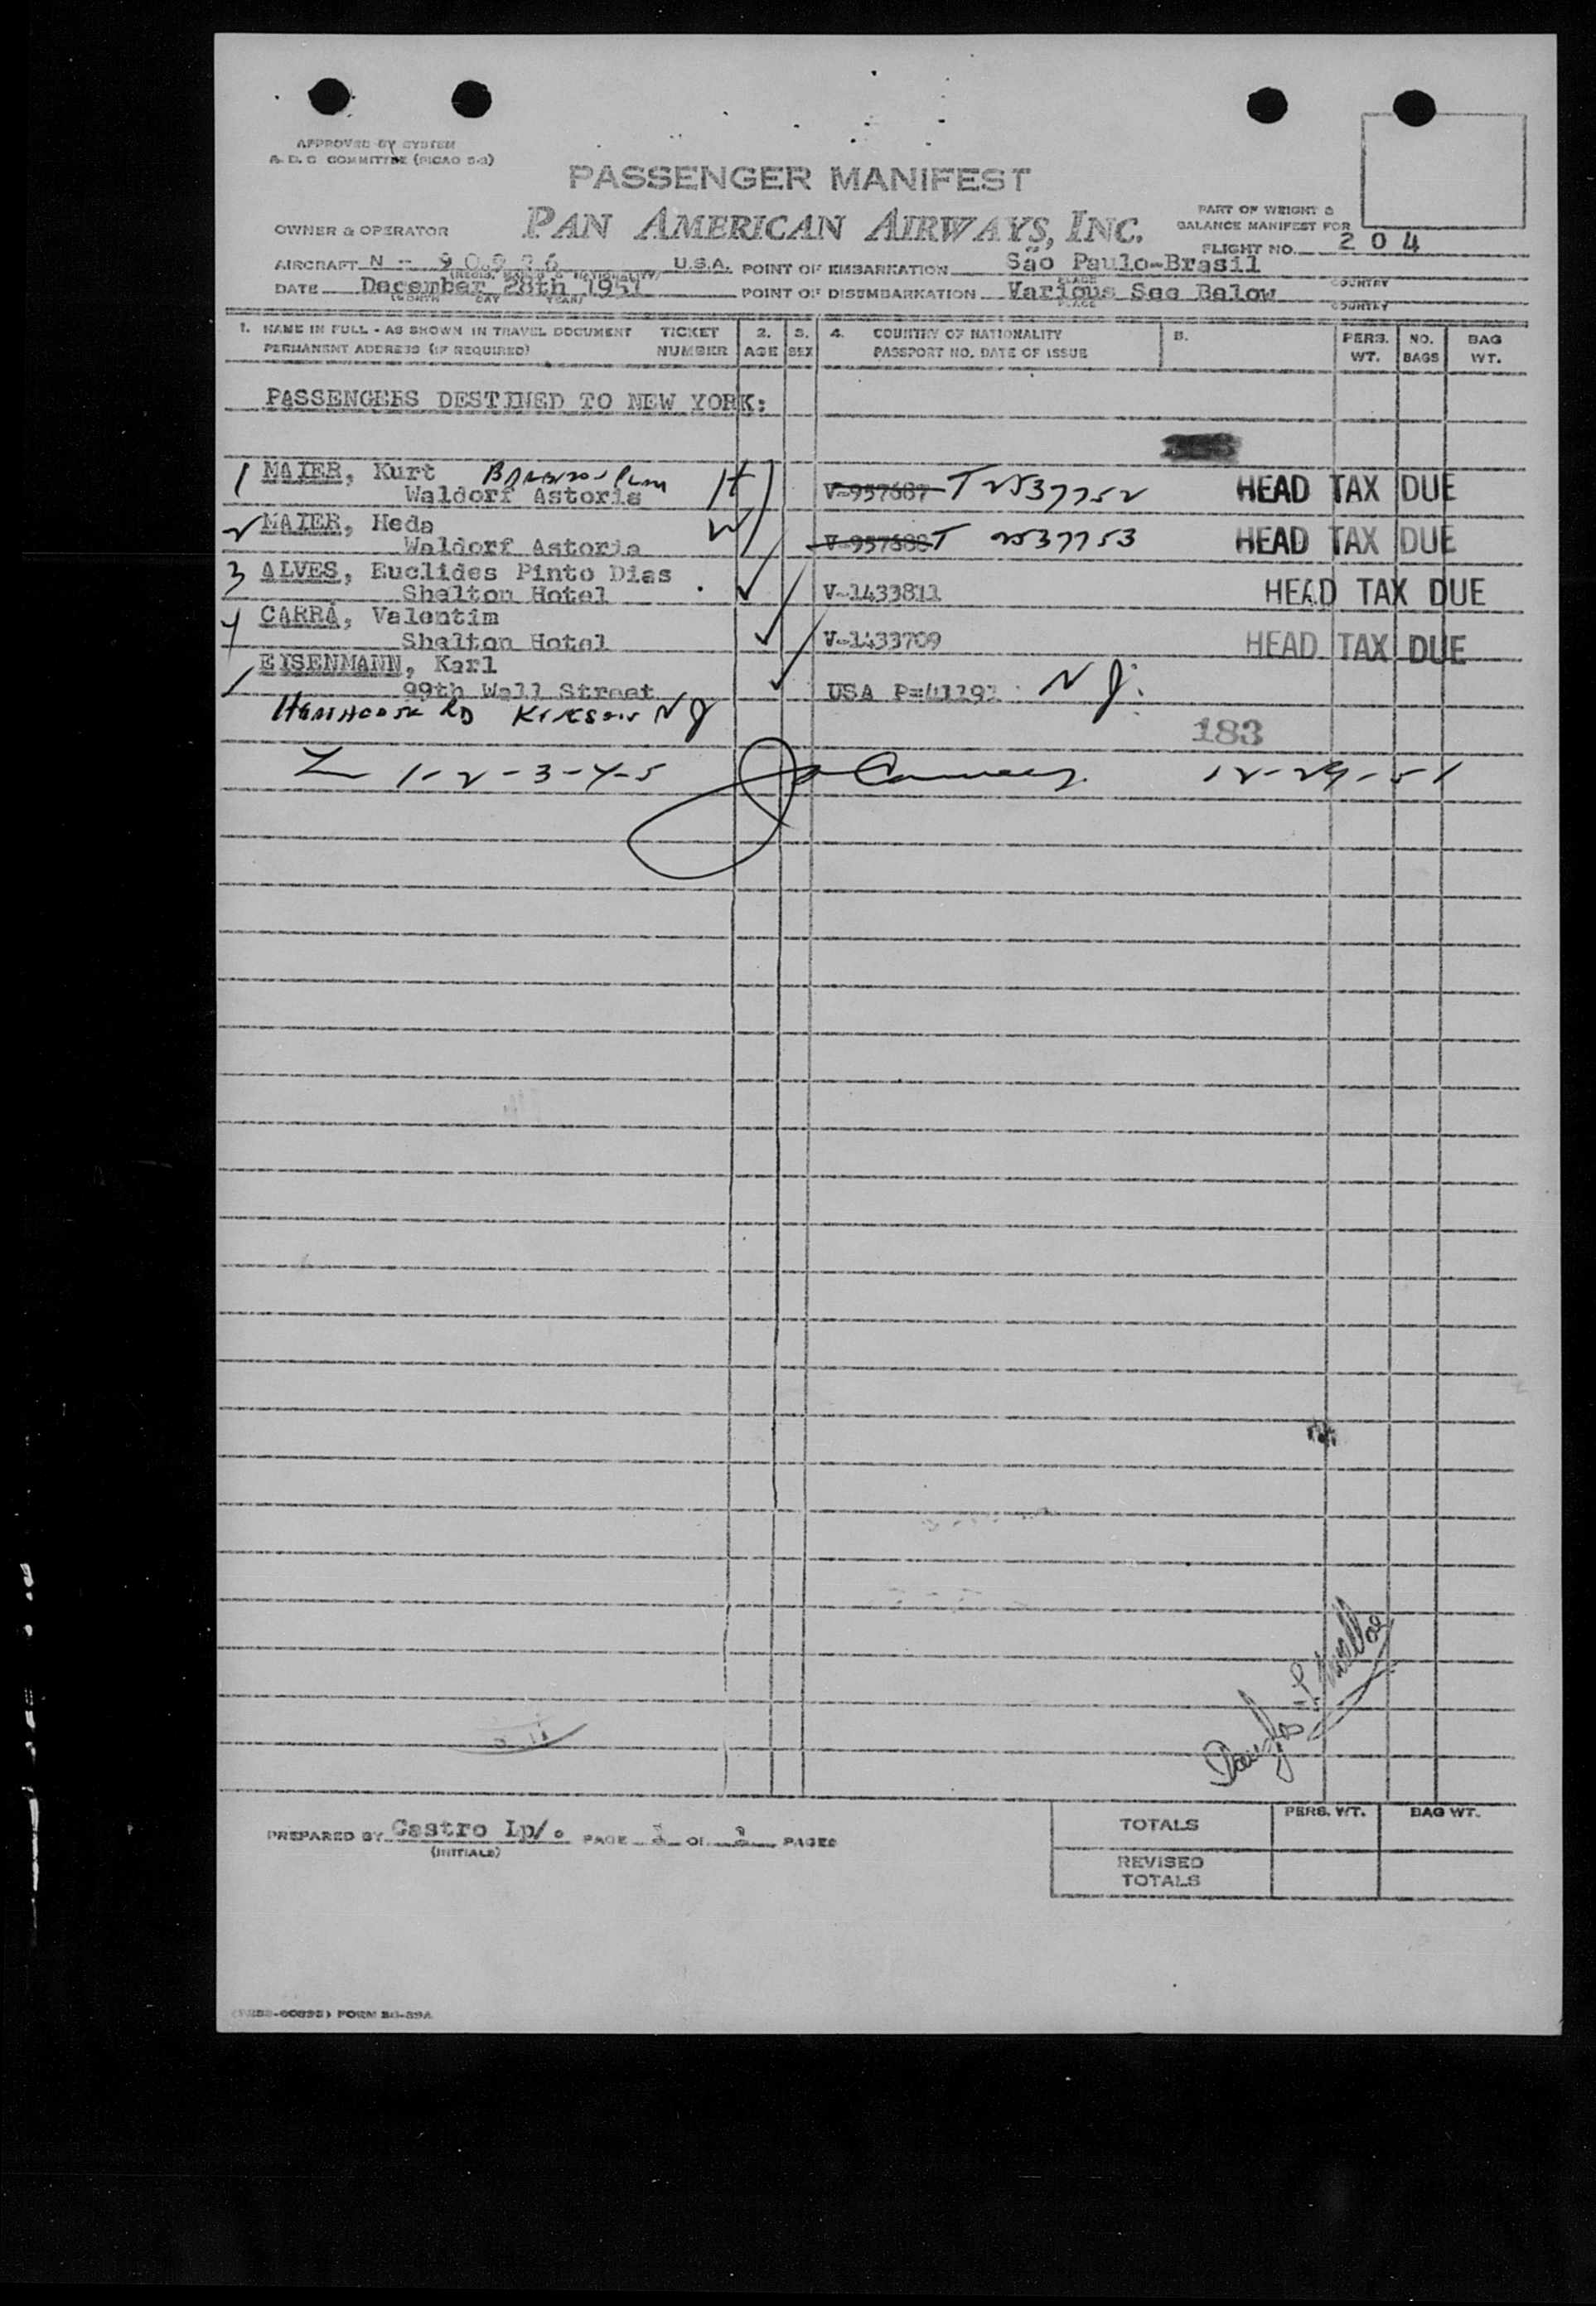 APPROVED BY SYSTEM
A. D. C COMMITTEE (PICAO 5-3)
PASSENGER MANIFEST
OWNER & OPERATOR PAN AMERICAN AIRWAYS, INC.
PART OF WEIGHT &
BALANCE MANIFEST FOR
FLIGHT NO. 204
AIRCRAFT N - U.S.A. POINT OF EMBARKATION São Paulo-Brasil
(REGIS. MARKS & NATIONALITY) PLACE COUNTRY
DATE December 28th 1951 POINT OF DISEMBARKATION Various See Below
(MONTH DAY YEAR) PLACE COUNTRY
1. NAME IN FULL - AS SHOWN IN TRAVEL DOCUMENT TICKET 2. 3. 4. COUNTRY OF NATIONALITY 5. PERS. NO. BAG
PERMANENT ADDRESS (IF REQUIRED) NUMBER AGE SEX PASSPORT NO. DATE OF ISSUE WT. BAGS WT.
PASSENGERS DESTINED TO NEW YORK:
1 MAIER, Kurt
Waldorf Astoria H V-957687 T 2537752 HEAD TAX DUE
2 MAIER, Heda
Waldorf Astoria W V-957688 T 2537753 HEAD TAX DUE
3 ALVES, Euclides Pinto Dias
Shelton Hotel V-1433811 HEAD TAX DUE
4 CARRÁ, Valentim
Shelton Hotel V-1433709 HEAD TAX DUE
EISENMANN, Karl
99th Wall Street USA N J.
RD N J
183
1-2-3-4-5 12-29-51
PREPARED BY Castro Lp/. PAGE OF PAGES
(INITIALS)
TOTALS PERS. WT. BAG WT.
REVISED
TOTALS